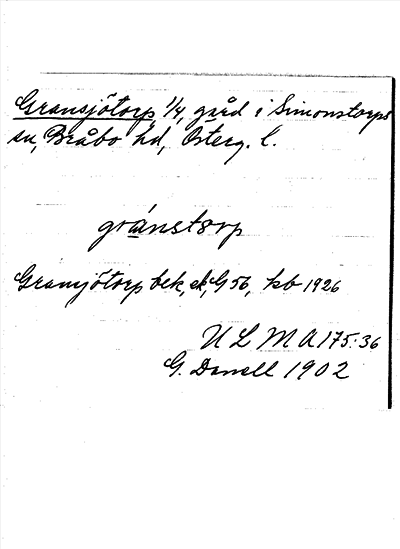 Gransjötorp 1/4, gård i Simonstorps
sn, Bråbo hd, Österg. l.
gránstorp
Gransjötorp bek, ek, G 56, kb 1926
U L M A 175:36
G. Danell 1902